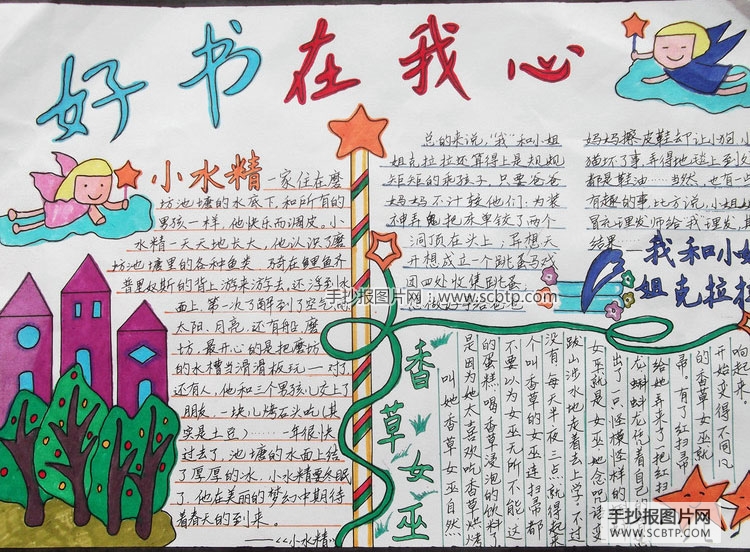 好书在我心
小水精 一家住在磨
坊池塘的水底下,和所有的
男孩一样,他快乐而调皮。小
水精一天天地长大,他认识了磨
坊池塘里的各种鱼类,骑在鲤鱼齐
普里奴斯的背上游来游去,还浮到水
面上,第一次了解到了空气
太阳、月亮,还有船、磨
坊。最开心的是把磨坊
的水槽当滑滑板玩——对了
还有人,他和三个男孩儿交上了
朋友,一块儿烤石头吃(其
实是土豆)……一年很快
过去了,池塘的水面上结
了厚厚的冰,小水精要冬眠
了,他在美丽的梦幻中期待
着春天的到来。
——《小水精》
总的来说,“我”和小姐
姐克拉拉还算得上是规规
矩矩的乖孩子,只要爸爸
妈妈不计较他们:为装
神弄鬼把床单铰了两个
洞顶在头上;异想天
开想成立一个跳蚤马戏
团四处收集跳蚤
妈妈擦皮鞋却让小狗、小
猫坏了事弄得地毯上到处
都是鞋油……当然,也有一些
有趣的事比方说,小姐姐
冒充理发师给我理发,其
结果——
我和小姐
姐克拉拉
手抄报图片网:www.scbtp.com
香草女巫
叫她香草女巫自然
是因为她太喜欢吃香草烘烤
的蛋糕、喝香草浸泡的饮料了
不要以为女巫无所不能,这
个叫香草的女巫连扫帚都
没有,每天半夜三点就得起来
跋山涉水地走着去上学,不过
女巫就是女巫地念咒语变
出了一只怪模怪样的
龙蚺蚺龙任着自己
给她弄来了把红扫
帚。有了红扫帚
的香草女巫就
开始变得不同凡
响起来。
手抄报图片网
www.SCBTP.com